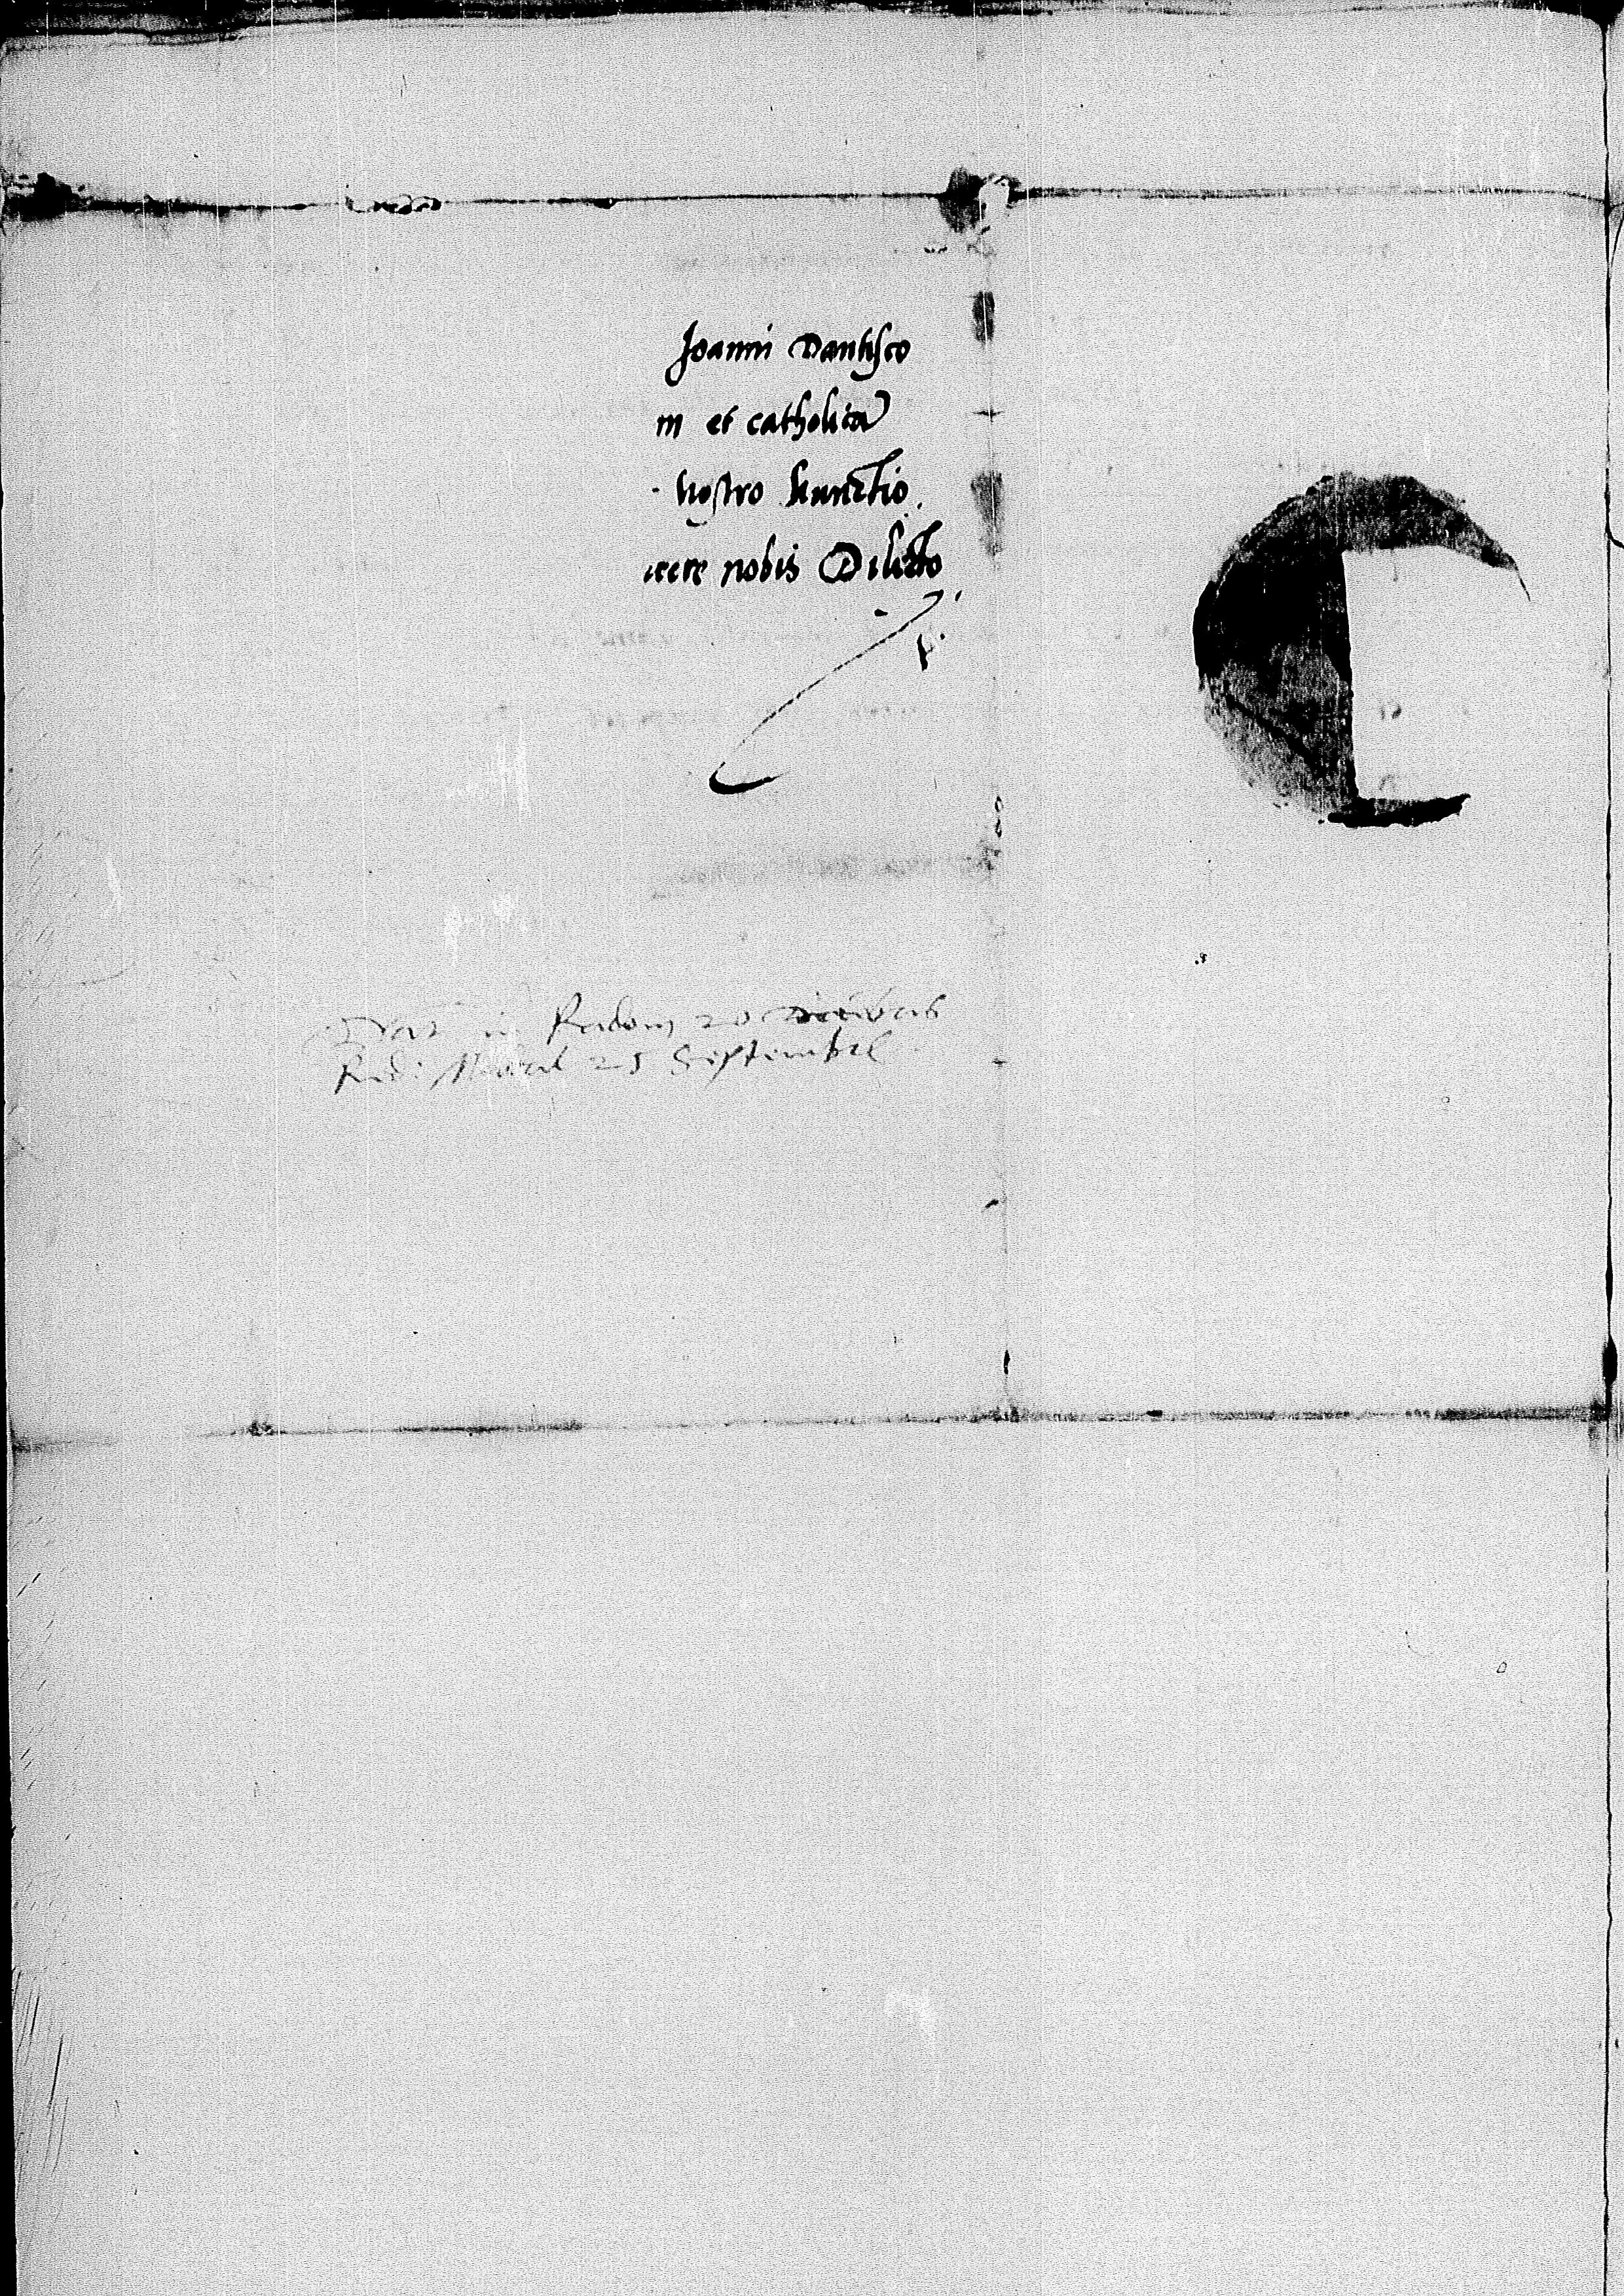 Joanni Dantisco
m et catholica
nostro Nunctio.
cere nobis Dilecto
in Radom 20
25 Septembris